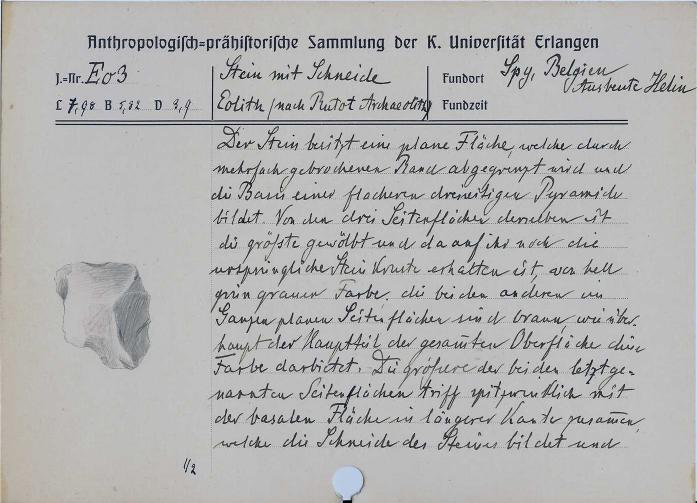 Anthropologisch=prähistorische Sammlung der K. Universität Erlangen
J.=Nr. Eo3
Stein mit Schneide
Fundort Spy, Belgien
Ausbeute Helin
L 7,98 B 5,82 D 3,9
Eolith (nach Rutot Archaeolith)
Fundzeit
Der Stein besitzt eine plane Fläche, welche durch
mehrfach gebrochenen Rand abgegrenzt wird und
die Basis einer flacheren dreiseitigen Pyramide
bildet. Von den drei Seitenflächen derselben ist
die größte gewölbt und da auf ihr noch die
ursprüngliche Steinkruste erhalten ist, von hell
grün grauer Farbe, die beiden anderen im
Ganzen planen Seitenflächen sind braun, wie über-
haupt der Hauptteil der gesam̄ten Oberfläche diese
Farbe darbietet. Die größere der beiden letztge-
nannten Seitenflächen triff spitzwinklich mit
der basalen Fläche in längerer Kante zusam̄en,
welche die Schneide des Steines bildet und
1/2